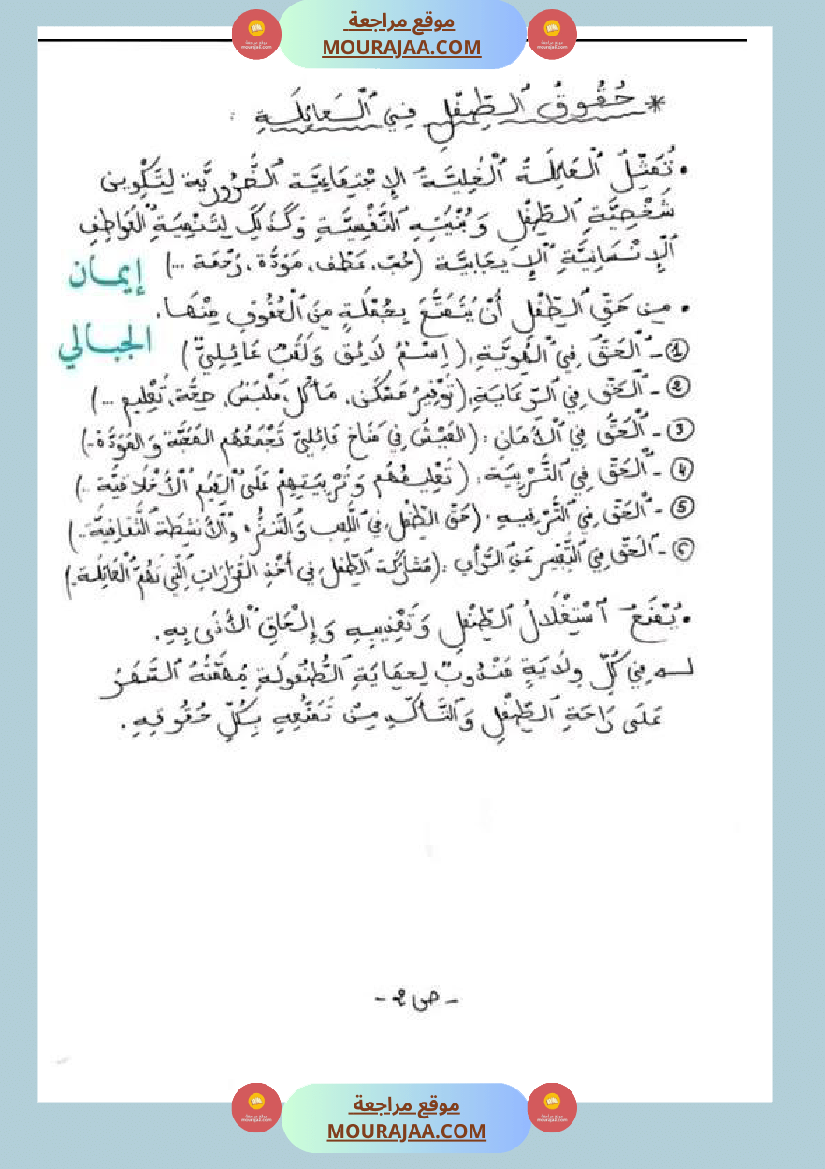 موقع مراجعة
MOURAJAA.COM
* حُقُوقُ الطِّفْلِ فِي الْعَائِلَةِ :
• تُمَثِّلُ الْعَائِلَةُ الْخَلِيَّةَ الاِجْتِمَاعِيَّةَ الضَّرُورِيَّة لِتَكْوِينِ
شَخْصِيَّةِ الطِّفْلِ وَبُنْيَتِهِ النَّفْسِيَّةِ وَكَذَلِكَ لِتَنْمِيَةِ الْعَوَاطِفِ
الْإِنْسَانِيَّةِ الْإِيجَابِيَّة (حُبّ، عَطْف، مَوَدَّة، رَحْمَة ...)
إيمان
• مِنْ حَقِّ الطِّفْلِ أَنْ يَتَمَتَّعَ بِجُمْلَةٍ مِنَ الْحُقُوقِ مِنْهَا:
الجبالي
1 - الْحَقُّ فِي الْهُوِيَّةِ: (اِسْمٌ لَائِقٌ وَلَقَبٌ عَائِلِيٌّ)
2 - الْحَقُّ فِي الرِّعَايَةِ: (تَوْفِيرُ مَسْكَنٍ، مَأْكَل، مَلْبَس، صِحَّة، تَعْلِيم ...)
3 - الْحَقُّ فِي الْأَمَانِ: (الْعَيْشُ فِي مَنَاخٍ عَائِلِيٍّ تَجْمَعُهُم الْمَحَبَّة وَالْمَوَدَّة..)
4 - الْحَقُّ فِي التَّرْبِيَةِ: (تَعْلِيمُهُم وَتَرْبِيَتِهِمْ عَلَى الْقِيَمِ الْأَخْلَاقِيَّة ..)
5 - الْحَقُّ فِي التَّرْفِيهِ: (حَقُّ الطِّفْلِ فِي اللَّعِب وَالتَّنَزُّه وَالْأَنْشِطَة الثَّقَافِيَّة..)
6 - الْحَقُّ فِي التَّعْبِيرِ عَنِ الرَّأْيِ: (مُشَارَكَة الطِّفْلِ فِي أَخْذِ الْقَرَارَاتِ الَّتِي تَهُمُّ الْعَائِلَة.)
• يُمْنَعُ اسْتِغْلَالُ الطِّفْلِ وَتَعْذِيبِهِ وَإِلْحَاقِ الْأَذَى بِهِ.
فِي كُلِّ وِلَايَةٍ مَنْدُوبٌ لِحِمَايَةِ الطُّفُولَةِ مُهِمَّتُهُ السَّهَرُ
عَلَى رَاحَةِ الطِّفْلِ وَالتَّأَكُّدِ مِنْ تَمَتُّعِهِ بِكُلِّ حُقُوقِهِ.
- ص 2 -
موقع مراجعة
MOURAJAA.COM